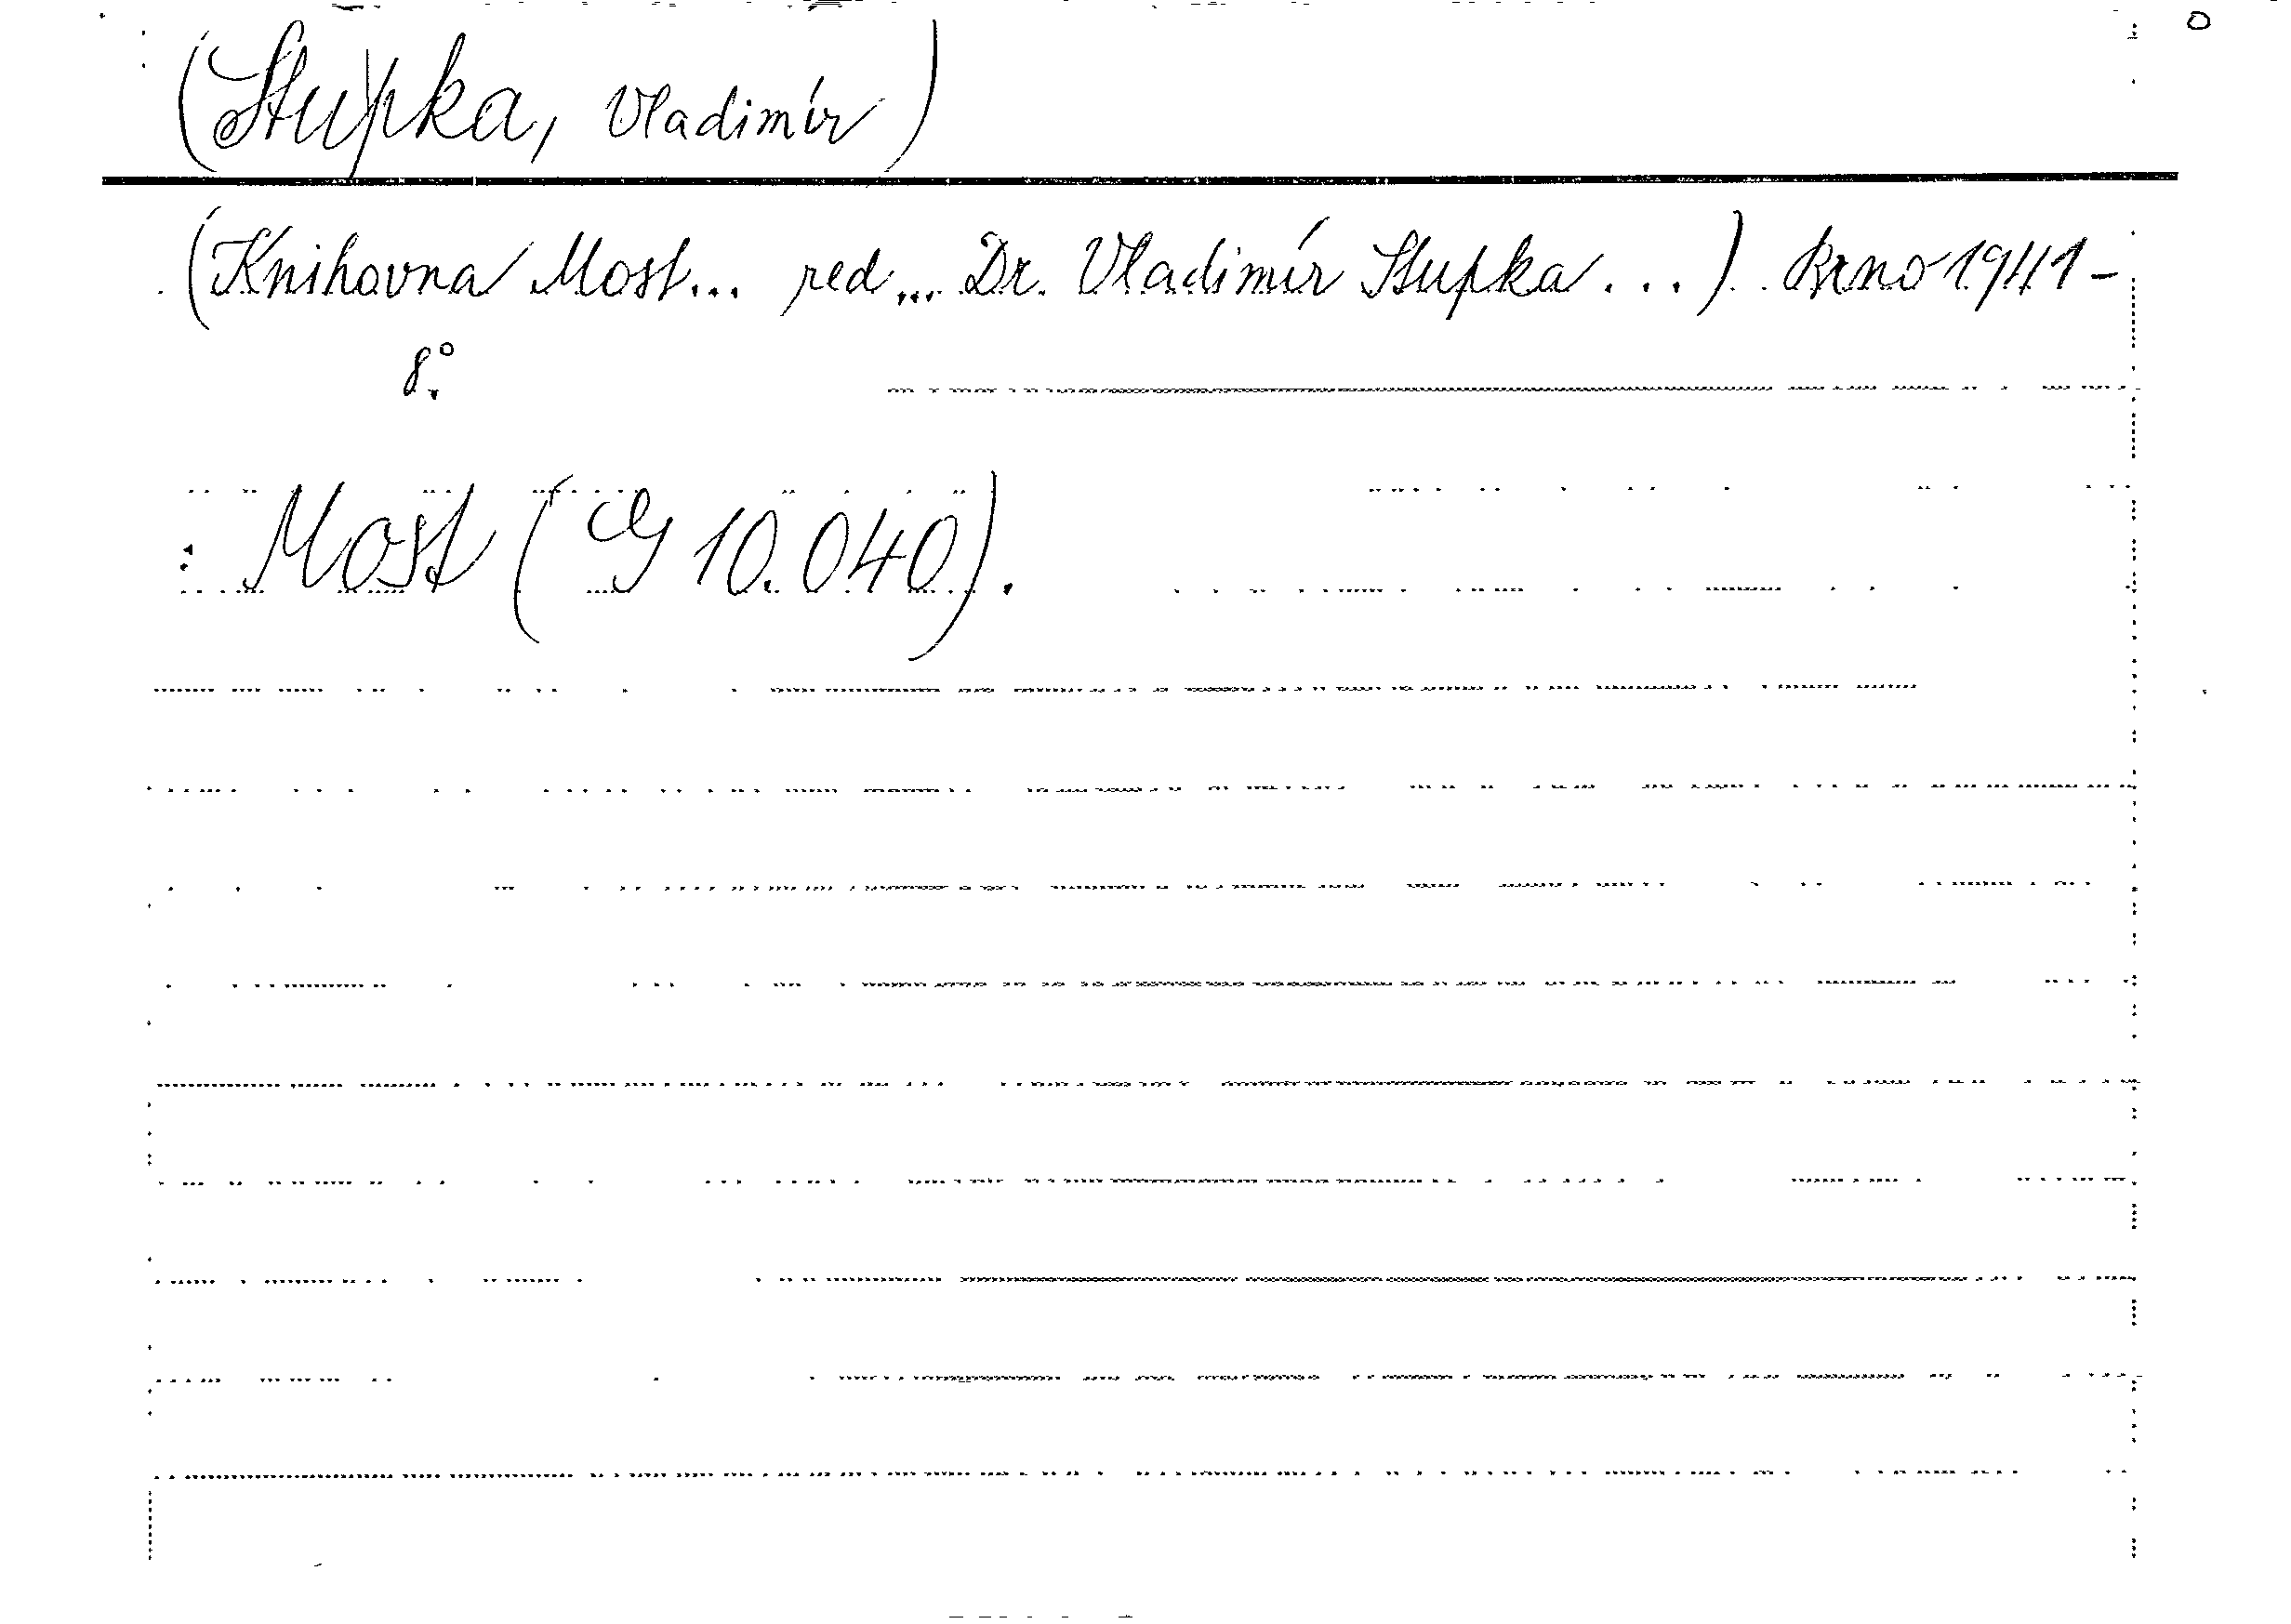 (Stupka, Vladimír)
(Knihovna Most... red... Dr. Vladimír Stupka ...) Brno 1941-
8°.
Most (10.040).